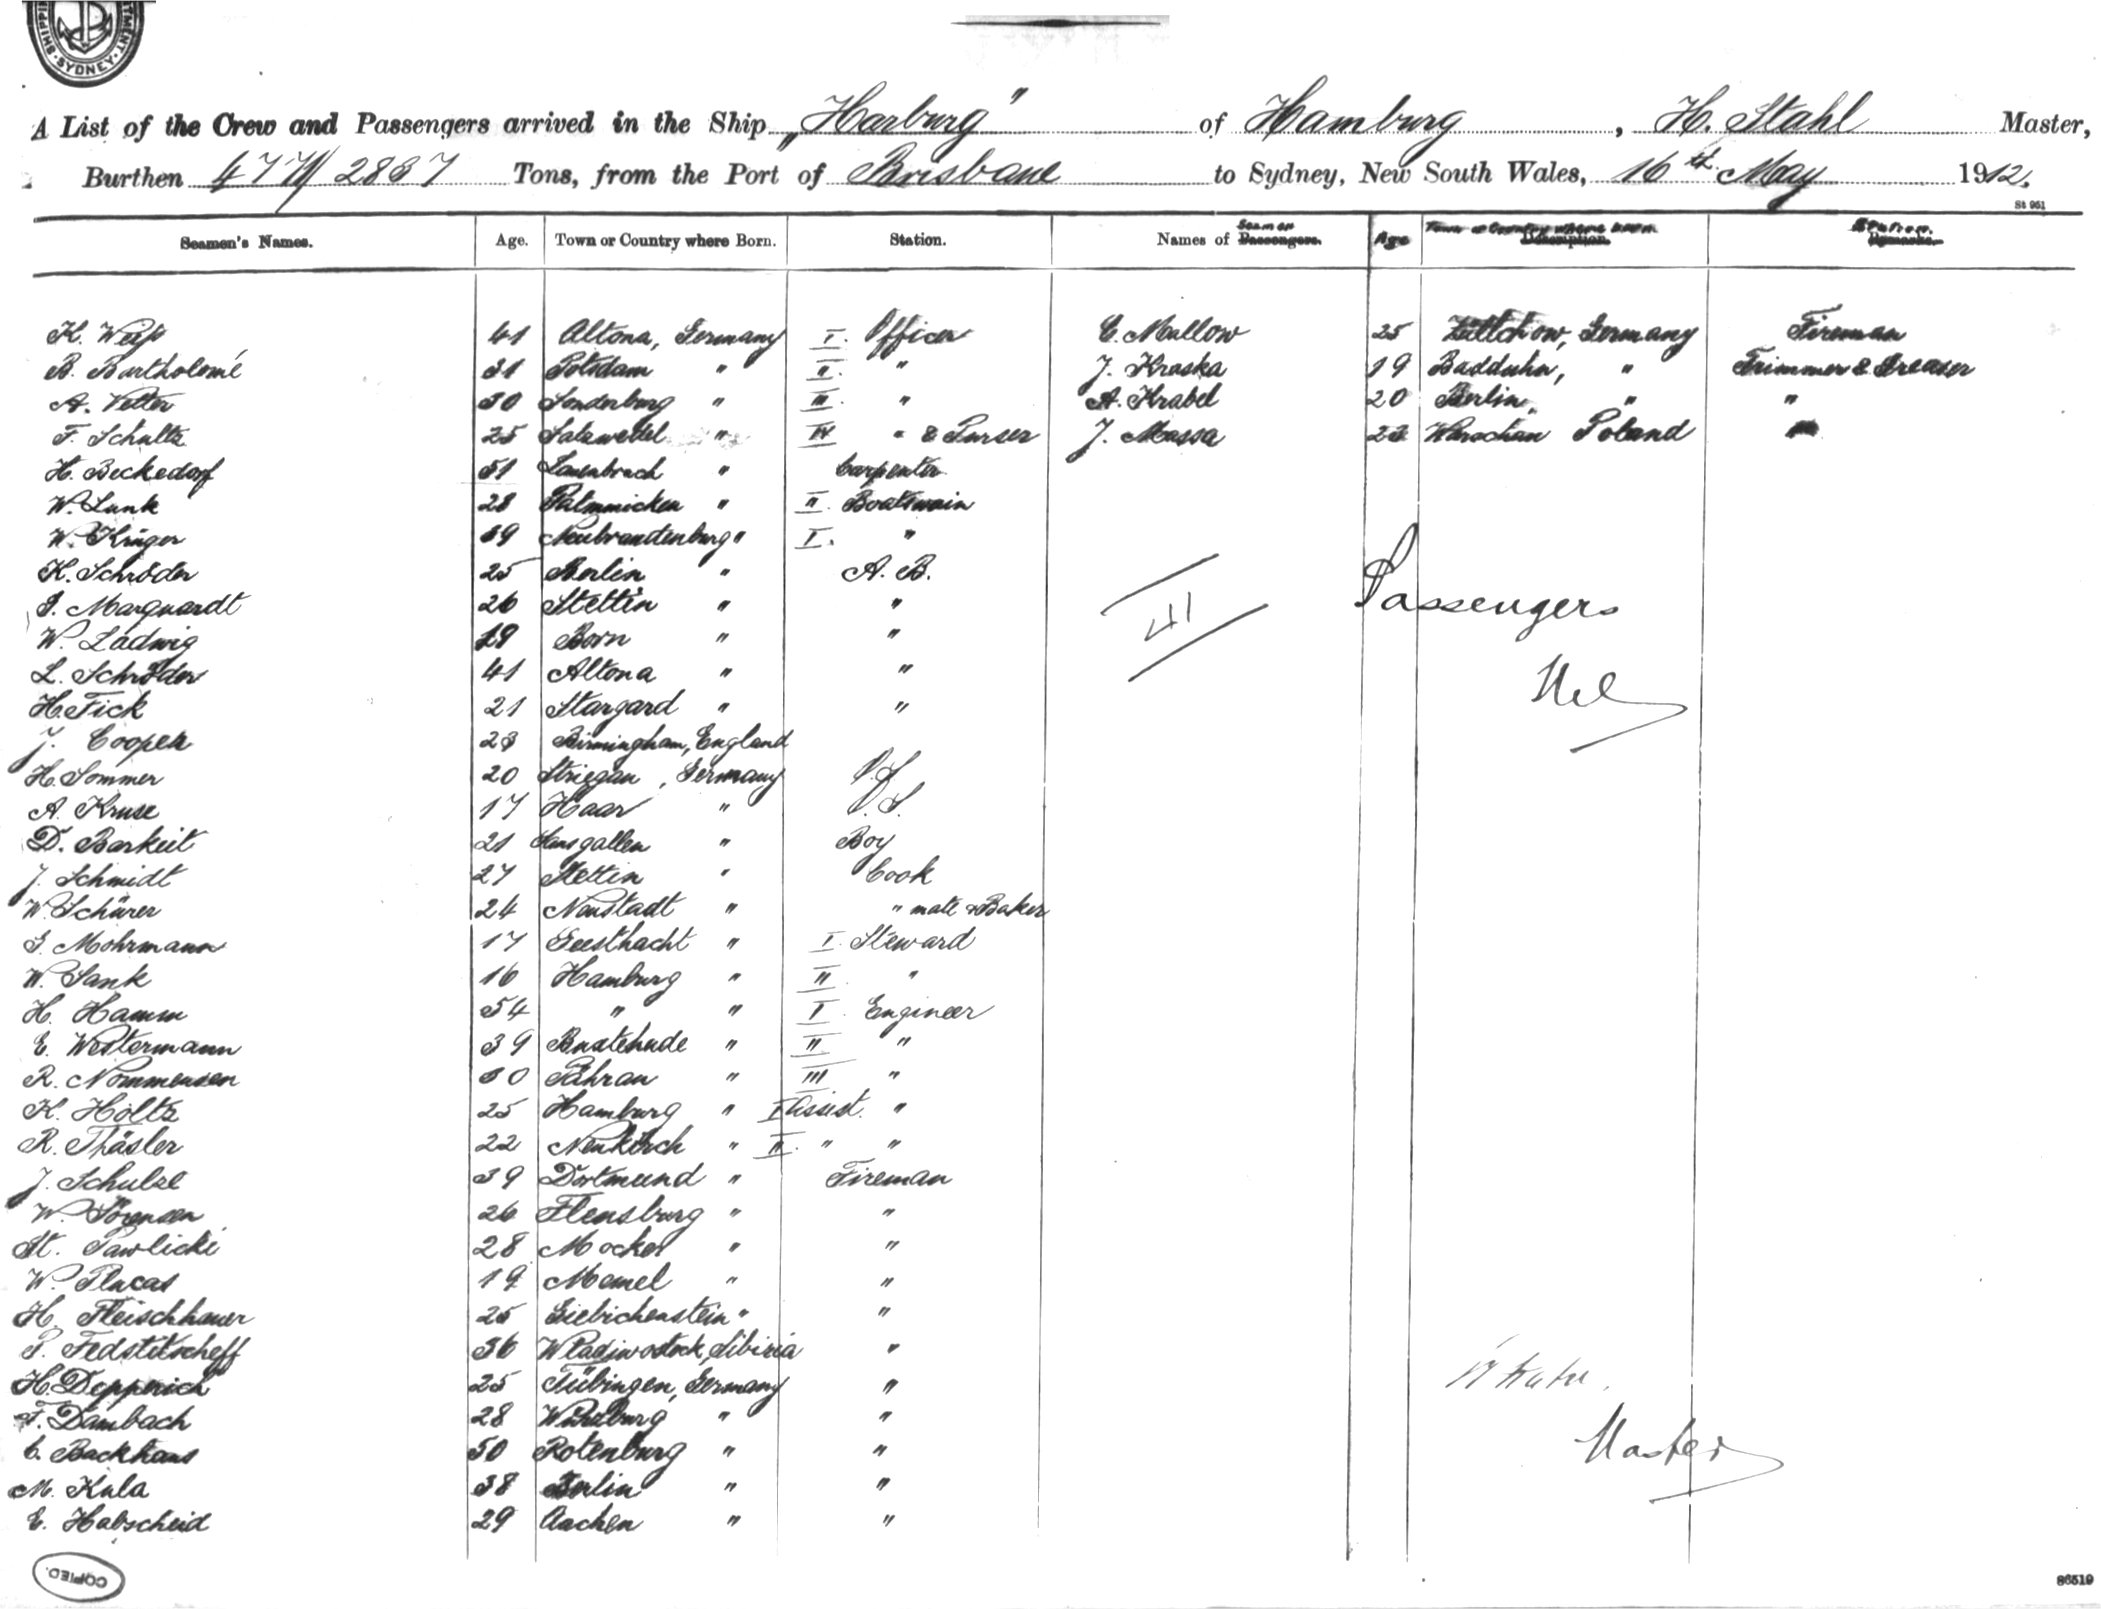 SHIPPI TMENT · SYDNEY ·
A List of the Crew and Passengers arrived in the Ship „Harburg" of Hamburg, H. Stahl Master,
Burthen 4771/2867 Tons, from the Port of Brisbane to Sydney, New South Wales, 16th May 1912.
St 961
Seamen's Names. Age. Town or Country where Born. Station. Names of Seamen Passengers. Age Town or Country where born Description. Station. Remarks.
K. Weiß 41 Altona, Germany I. Officer C. Mallow 25 Züllchow, Germany Fireman
B. Bartholomé 31 Potsdam " II. " J. Kraska 19 Badduhn, " Trimmer & Greaser
A. Vetter 30 Sonderburg " III. " A. Krabel 20 Berlin, " "
F. Schultz 25 Salzwedel " IV " & Purser J. Massa 23 Warschau Poland "
H. Beckedorf 51 Lauenbruch " Carpenter
W. Lunk 28 Palmnicken " II. Boatswain
W. Krüger 39 Neubrandenburg " I. "
K. Schröder 25 Berlin " A. B.
G. Marquardt 26 Stettin " "
W. Ladwig 19 Born " "
L. Schröder 41 Altona " "
H. Fick 21 Stargard " "
J. Cooper 23 Birmingham, England
H. Sommer 20 Striegau, Germany O.S.
A. Kruse 17 Haar " O.S.
D. Barkeit 21 gallen " Boy
J. Schmidt 27 Stettin " Cook
W. Schürer 24 Neustadt " " mate & Baker
G. Mohrmann 17 Geesthacht " I. Steward
W. Sank 16 Hamburg " II "
H. Hamm 54 " " I Engineer
E. Westermann 39 Buxtehude " II "
R. Nommensen 30 Pahran " III "
K. Holtz 25 Hamburg " I Assist. "
R. Thäsler 22 Neukirch " II. " "
J. Schulze 39 Dortmund " Fireman
W. Sörensen 26 Flensburg " "
St. Pawlicki 28 Mocker " "
W. Plucas 19 Memel " "
H. Fleischhauer 25 Giebichenstein " "
P. Fedstitscheff 36 Wladiwostock, Sibiria "
H. Depperich 25 Tübingen, Germany "
F. Dambach 28 Würzburg " "
C. Backhaus 50 Rotenburg " "
M. Kula 38 Berlin " "
E. Habscheid 29 Aachen " "
41
Passengers
Nil
Master
COPIED.
86519